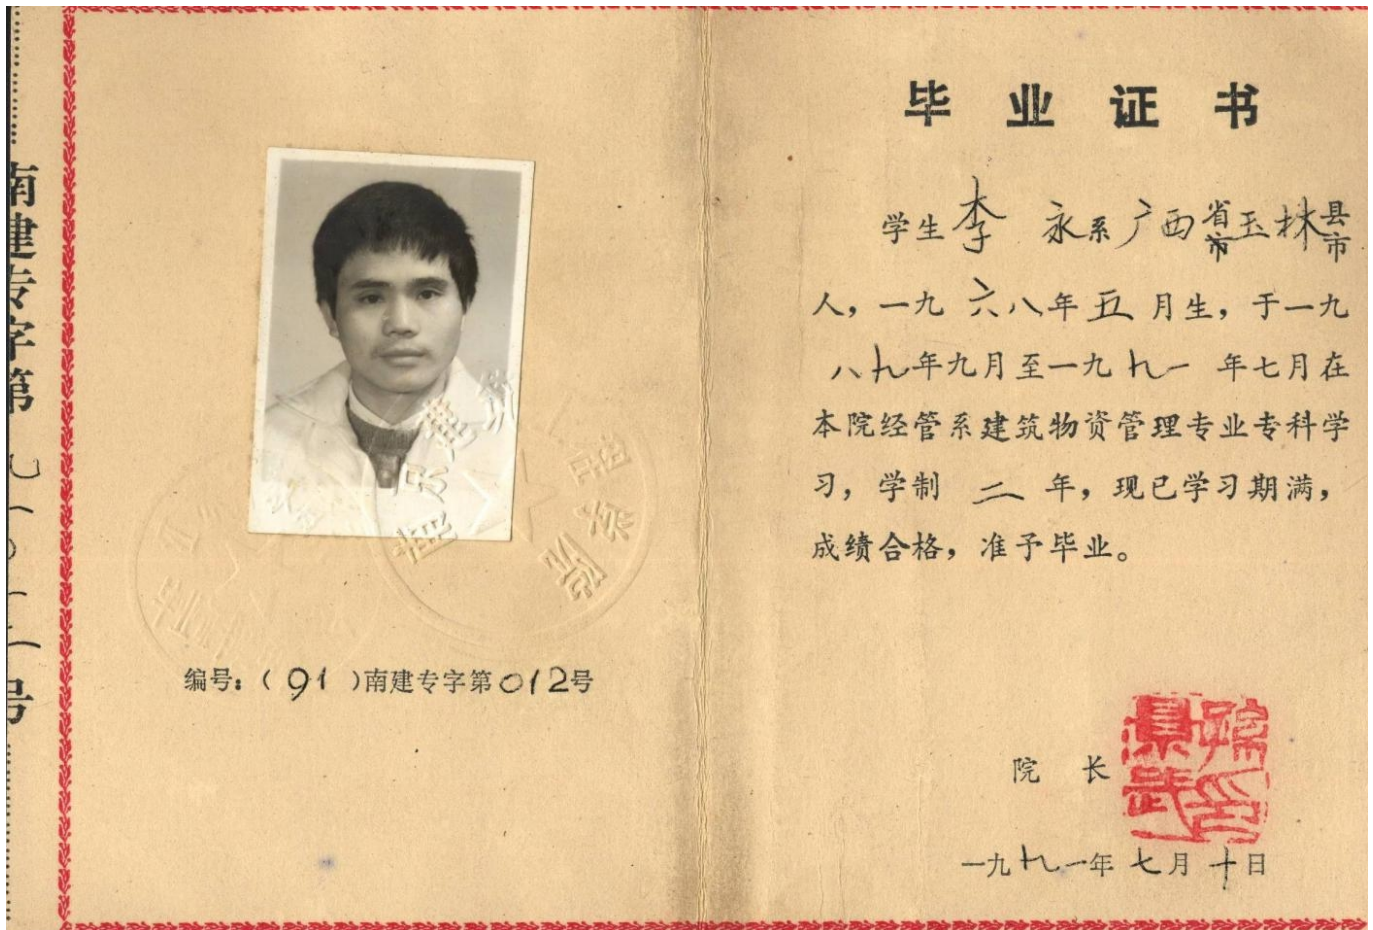 南建专字第九一〇一二号
编号：（91）南建专字第012号
毕业证书
学生李 永系广西省市玉林县市
人，一九六八年五月生，于一九
八九年九月至一九九一年七月在
本院经管系建筑物资管理专业专科学
习，学制 二 年，现已学习期满，
成绩合格，准予毕业。
院 长
一九九一年七月十日